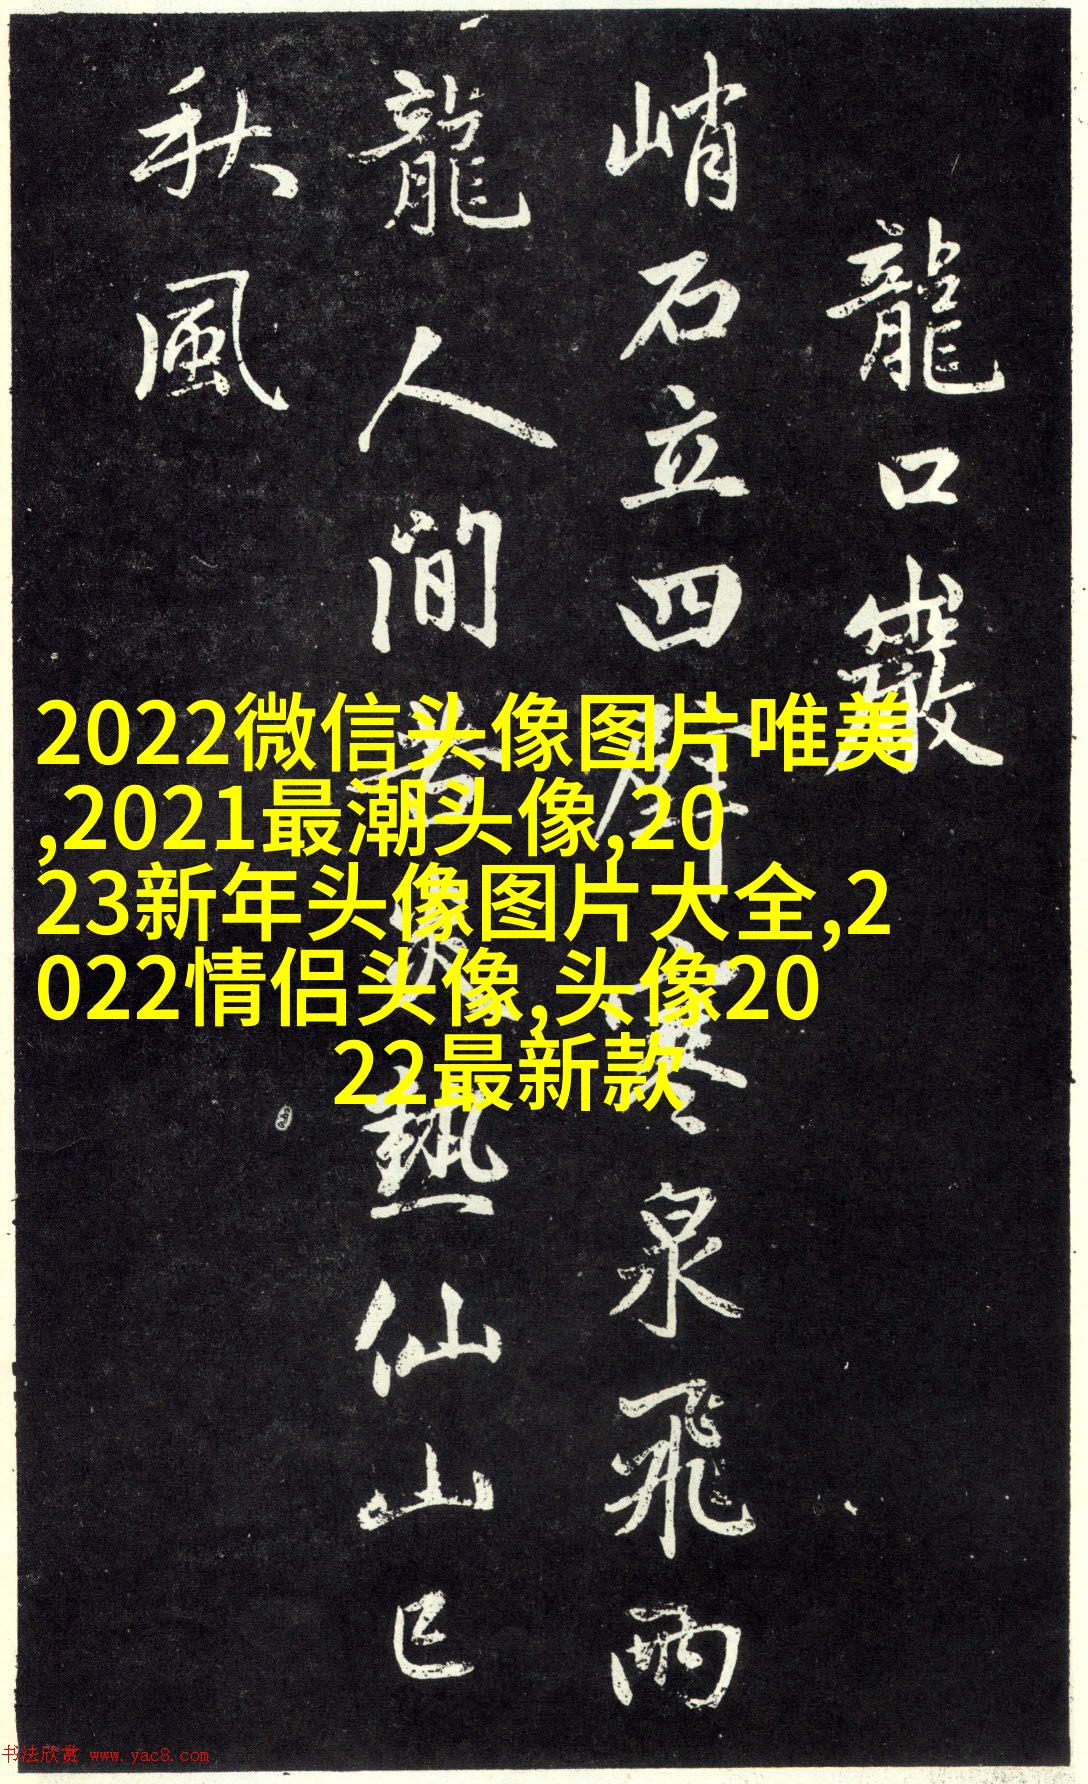 龍口巖
峭石立四壁寒泉飛兩
龍人間苦炎熱仙山已
秋風
2022微信头像图片唯美
,2021最潮头像,20
23新年头像图片大全,2
022情侣头像,头像20
22最新款
书法欣赏 www.yac8.com